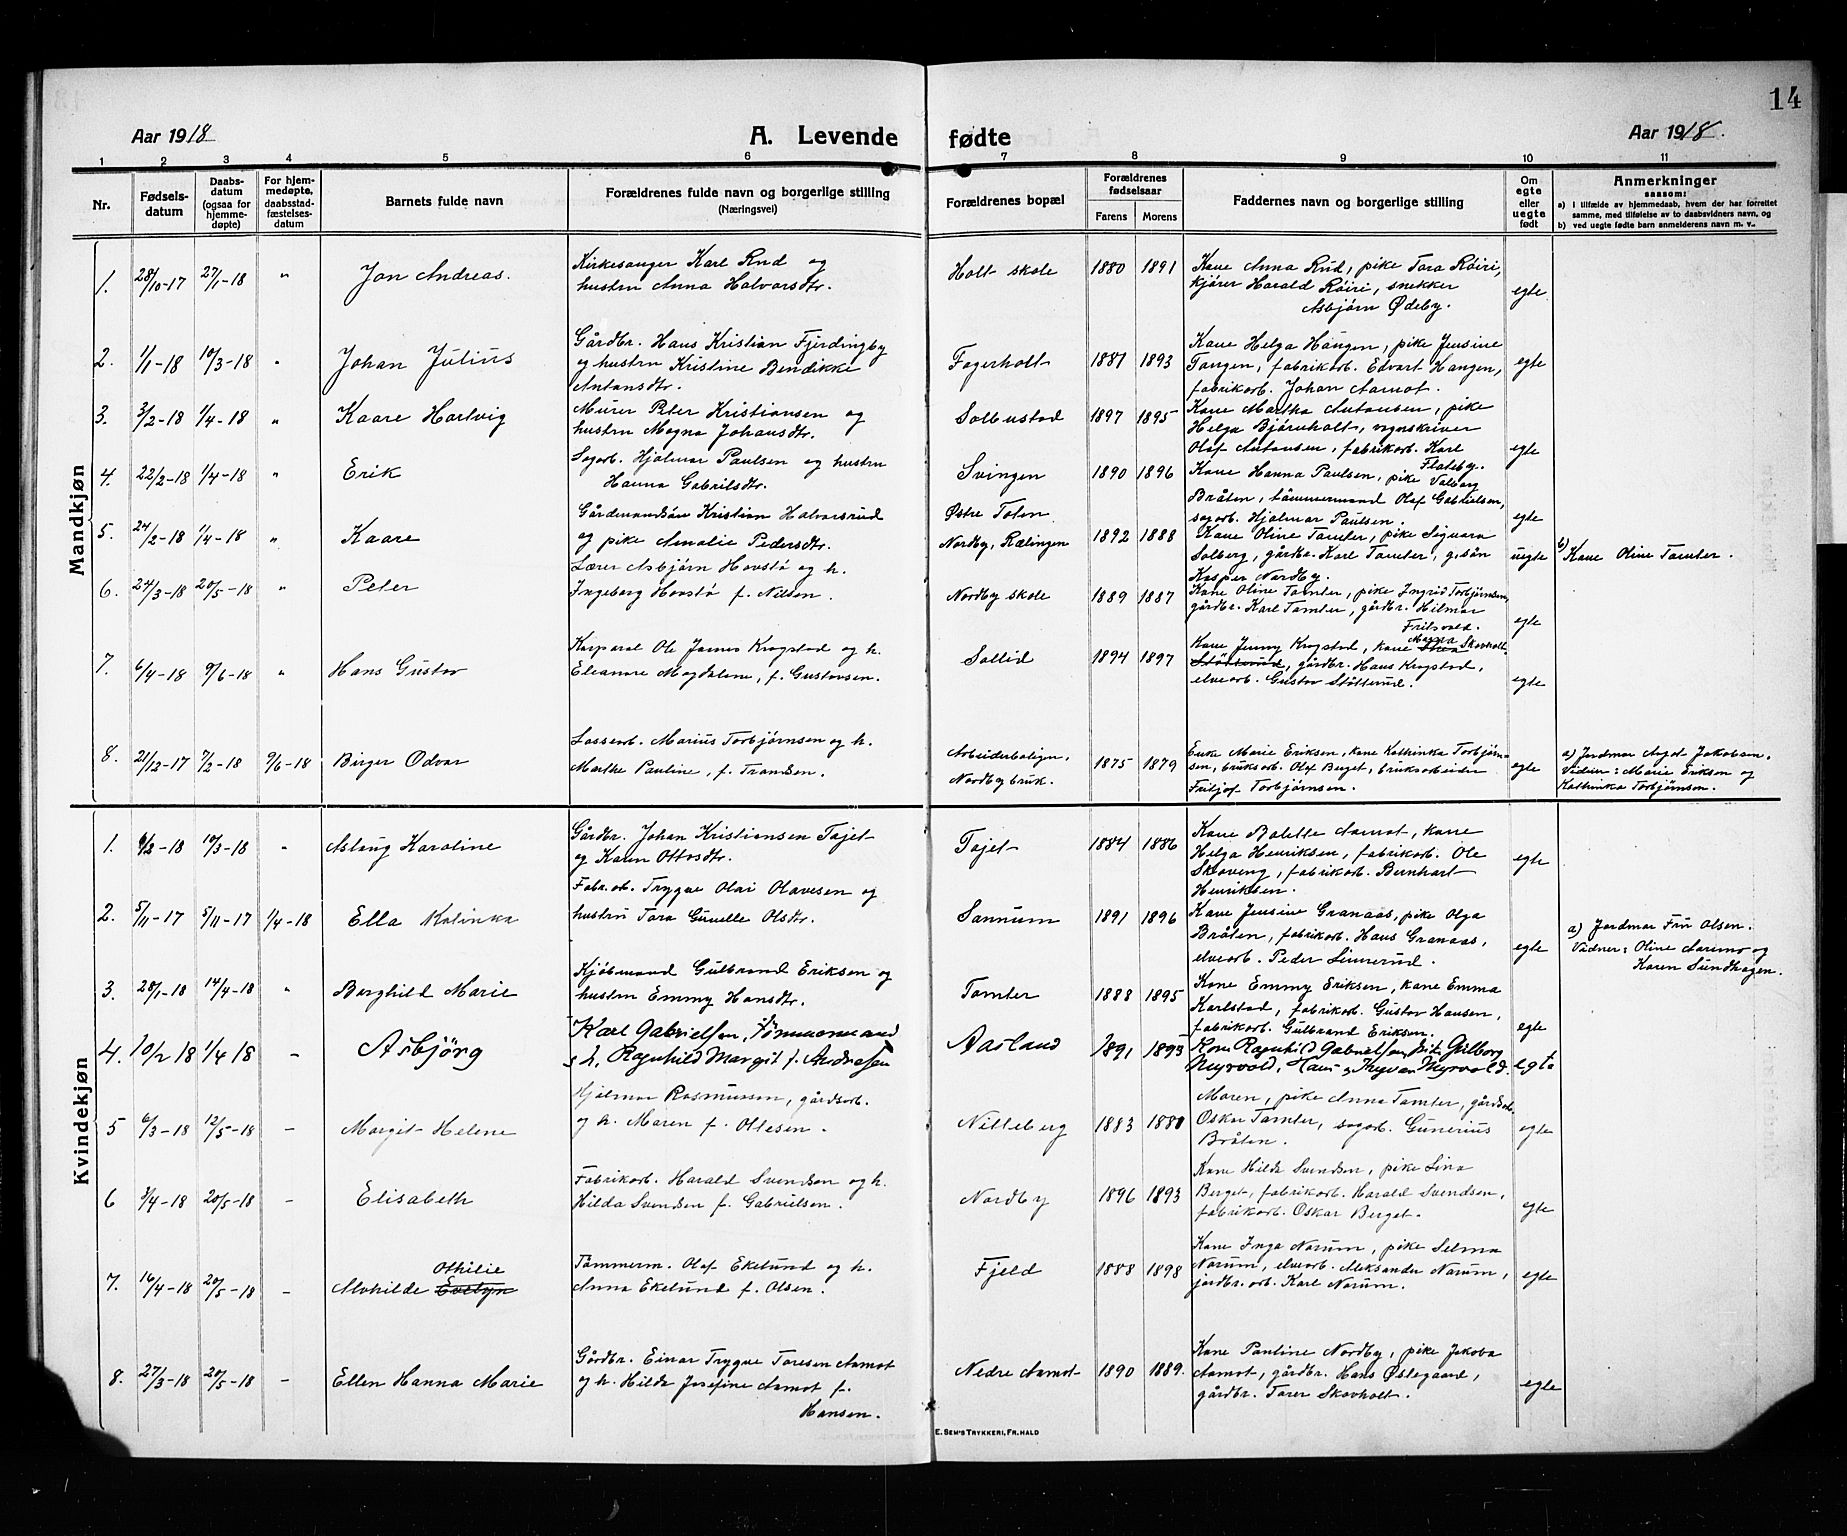 14
Aar 1918
A. Levende fødte
Aar 1918.
1 2 3 4 5 6 7 8 9 10 11
Nr.
Fødsels-
datum
Daabs-
datum
(ogsaa for
hjemme-
døpte)
For hjem-
medøpte,
daabsstad-
fæstelses-
datum
Barnets fulde navn
Forældrenes fulde navn og borgerlige stilling
(Næringsvei)
Forældrenes bopæl
Forældrenes
fødselsaar
Farens Morens
Faddernes navn og borgerlige stilling
Om
egte
eller
uegte
født
Anmerkninger
saasom:
a) I tilfælde av hjemmedaab, hvem der har forrettet
samme, med tilføielse av to daabsvidners navn, og
b) ved uegte fødte barn anmelderens navn m. v.
Mandkjøn
1. 28/10-17 27/1-18 " Jon Andreas.
Kirkesanger Karl Rud og
hustru Anna Halvarsdtr.
Holt skole 1880 1891
Kone Anna Rud, pike Tora Røiri,
kjører Harald Røiri, snekker
Asbjørn Ødeby.
egte
2. 1/1-18 10/3-18 " Johan Julius
Gårdbr. Hans Kristian Fjerdingby
og hustru Kristine Bendikke
Antonsdtr.
Fagerholt 1887 1893
Kone Helga Haugen, pike Jensine
Tangen, fabrikarb. Edvart Haugen,
fabrikarb. Johan Aamot.
egte
3. 3/2-18 1/4-18 " Kaare Hartvig
Murer Peter Kristiansen og
hustru Magna Johansdtr.
Solbustad 1897 1895
Kone Martha Antonsen, pike
Helga Bjørnholt, vognskriver
Olaf Antonsen, fabrikarb. Karl
Flateby.
egte
4. 22/2-18 1/4-18 " Erik
Sagarb. Hjalmar Paulsen og hustru
Hanna Gabrilsdtr.
Svingen 1890 1896
Kone Hanna Paulsen, pike Valborg
Bråten, tømmermand Olaf Gabrielsen,
sagarb. Hjalmar Paulsen.
egte
5. 24/2-18 1/4-18 " Kaare
Gårdmandsøn Kristian Halvorsrud
og pike Amalie Pedersdtr.
Østre Toten
Nordby, Rælingen 1892 1888
Kone Oline Tamter, pike Signara
Solberg, gårdbr. Karl Tamter, g.søn
Kasper Nordby.
uegte
b) Kone Oline Tamter.
6. 24/3-18 20/5-18 " Peter
Lærer Asbjørn Hovstø og h.
Ingeborg Hovstø f. Nilsen.
Nordby skole 1889 1887
Kone Oline Tamter, pike Ingrid Torbjørnsen,
gårdbr. Karl Tamter, gårdbr. Hilmar
Fritsvold.
egte
7. 6/4-18 9/6-18 " Hans Gustav
Korporal Ole James Krogstad og h.
Eleanore Magdalene, f. Gustavsen.
Sollid 1894 1897
Kone Jenny Krogstad, kone Magna Skovholt,
Støtterud, gårdbr. Hans Krogstad,
elvearb. Gustav Støtterud.
egte
8. 21/12-17 7/2-18 9/6-18 Birger Odvar
Lossearb. Marius Torbjørnsen og h.
Marthe Pauline, f. Trondsen.
Arbeiderboligen,
Nordby bruk. 1875 1879
Enke Marie Eriksen, kone Kathinka Torbjørn-
sen, bruksarb. Olaf Berget, bruksarbeider
Fritjof Torbjørnsen.
egte
a) Jordmor Aagot Jakobsen.
Vidner: Marie Eriksen og
Kathinka Torbjørnsen.
Kvindekjøn
1. 6/2-18 10/3-18 " Aslaug Karoline
Gårdbr. Johan Kristiansen Tajet
og Karen Ottosdtr.
Tajet 1884 1886
Kone Bolette Aamot, kone
Helga Henriksen, fabrikarb. Ole
Skoveng, fabrikarb. Bernhart
Henriksen.
egte
2. 5/11-17 5/11-17 1/4-18 Ella Katinka
Fabr.arb. Trygve Olai Olavesen og
hustru Tora Gunelle Olsdtr.
Sannum 1891 1896
Kone Jensine Granaas, pike Olga
Bråten, fabrikarb. Hans Granaas,
elvearb. Peder Sinnerud.
egte
a) Jordmor Fru Olsen.
Vidner: Oline Aarmo og
Karen Sundhagen.
3. 28/1-18 14/4-18 " Borghild Marie
Kjøbmand Gulbrand Eriksen og
hustru Emmy Hansdtr.
Tamter 1888 1895
Kone Emmy Eriksen, kone Emma
Karlstad, fabrikarb. Gustav Hansen,
fabrikarb. Gulbrand Eriksen.
egte
4. 10/2 18 1/4 18 - Asbjörg
Karl Gabrielsen, Tömmermand
o. h. Ragnhild Margit f. Andreasen
Aasland 1891 1893
Kone Ragnhild Gabrielsen, Gulborg
Myrvold, Hans og Trygve Myrvold.
egte
5 6/3-18 12/5-18 - Margit Helene
Hjalmar Rasmussen, gårdsarb.
og h. Maren f. Ottesen.
Nitteberg 1883 1880
Moren, pike Anna Tamter, gårdsarb.
Oskar Tamter, sagarb. Gunerius
Bråten.
egte
6 3/4-18 20/5-18 - Elisabeth
Fabrikarb. Harald Svendsen og h.
Hilda Svendsen f. Gabrielsen.
Nordby 1896 1893
Kone Hilda Svendsen, pike Lina
Berget, fabrikarb. Harald Svendsen,
fabrikarb. Oskar Berget.
egte
7. 16/4-18 20/5-18 - Alvhilde Othilie Evelyn
Tømmerm. Olaf Ekelund og h.
Anna Ekelund f. Olsen.
Fjeld 1888 1898
Kone Inga Norum, pike Selma
Norum, elvearb. Aleksander Norum,
jordbr. arb. Karl Norum.
egte
8. 27/3-18 20/5-18 - Ellen Hanna Marie
Gårdbr. Einar Trygve Toresen Aamot
og h. Hilda Josefine Aamot f.
Hansen.
Nedre Aamot 1890 1889.
Kone Pauline Nordby, pike Jakoba
Aamot, gårdbr. Hans Østegaard,
gårdbr. Torer Skovholt.
egte
E. SEM'S TRYKKERI, FR.HALD